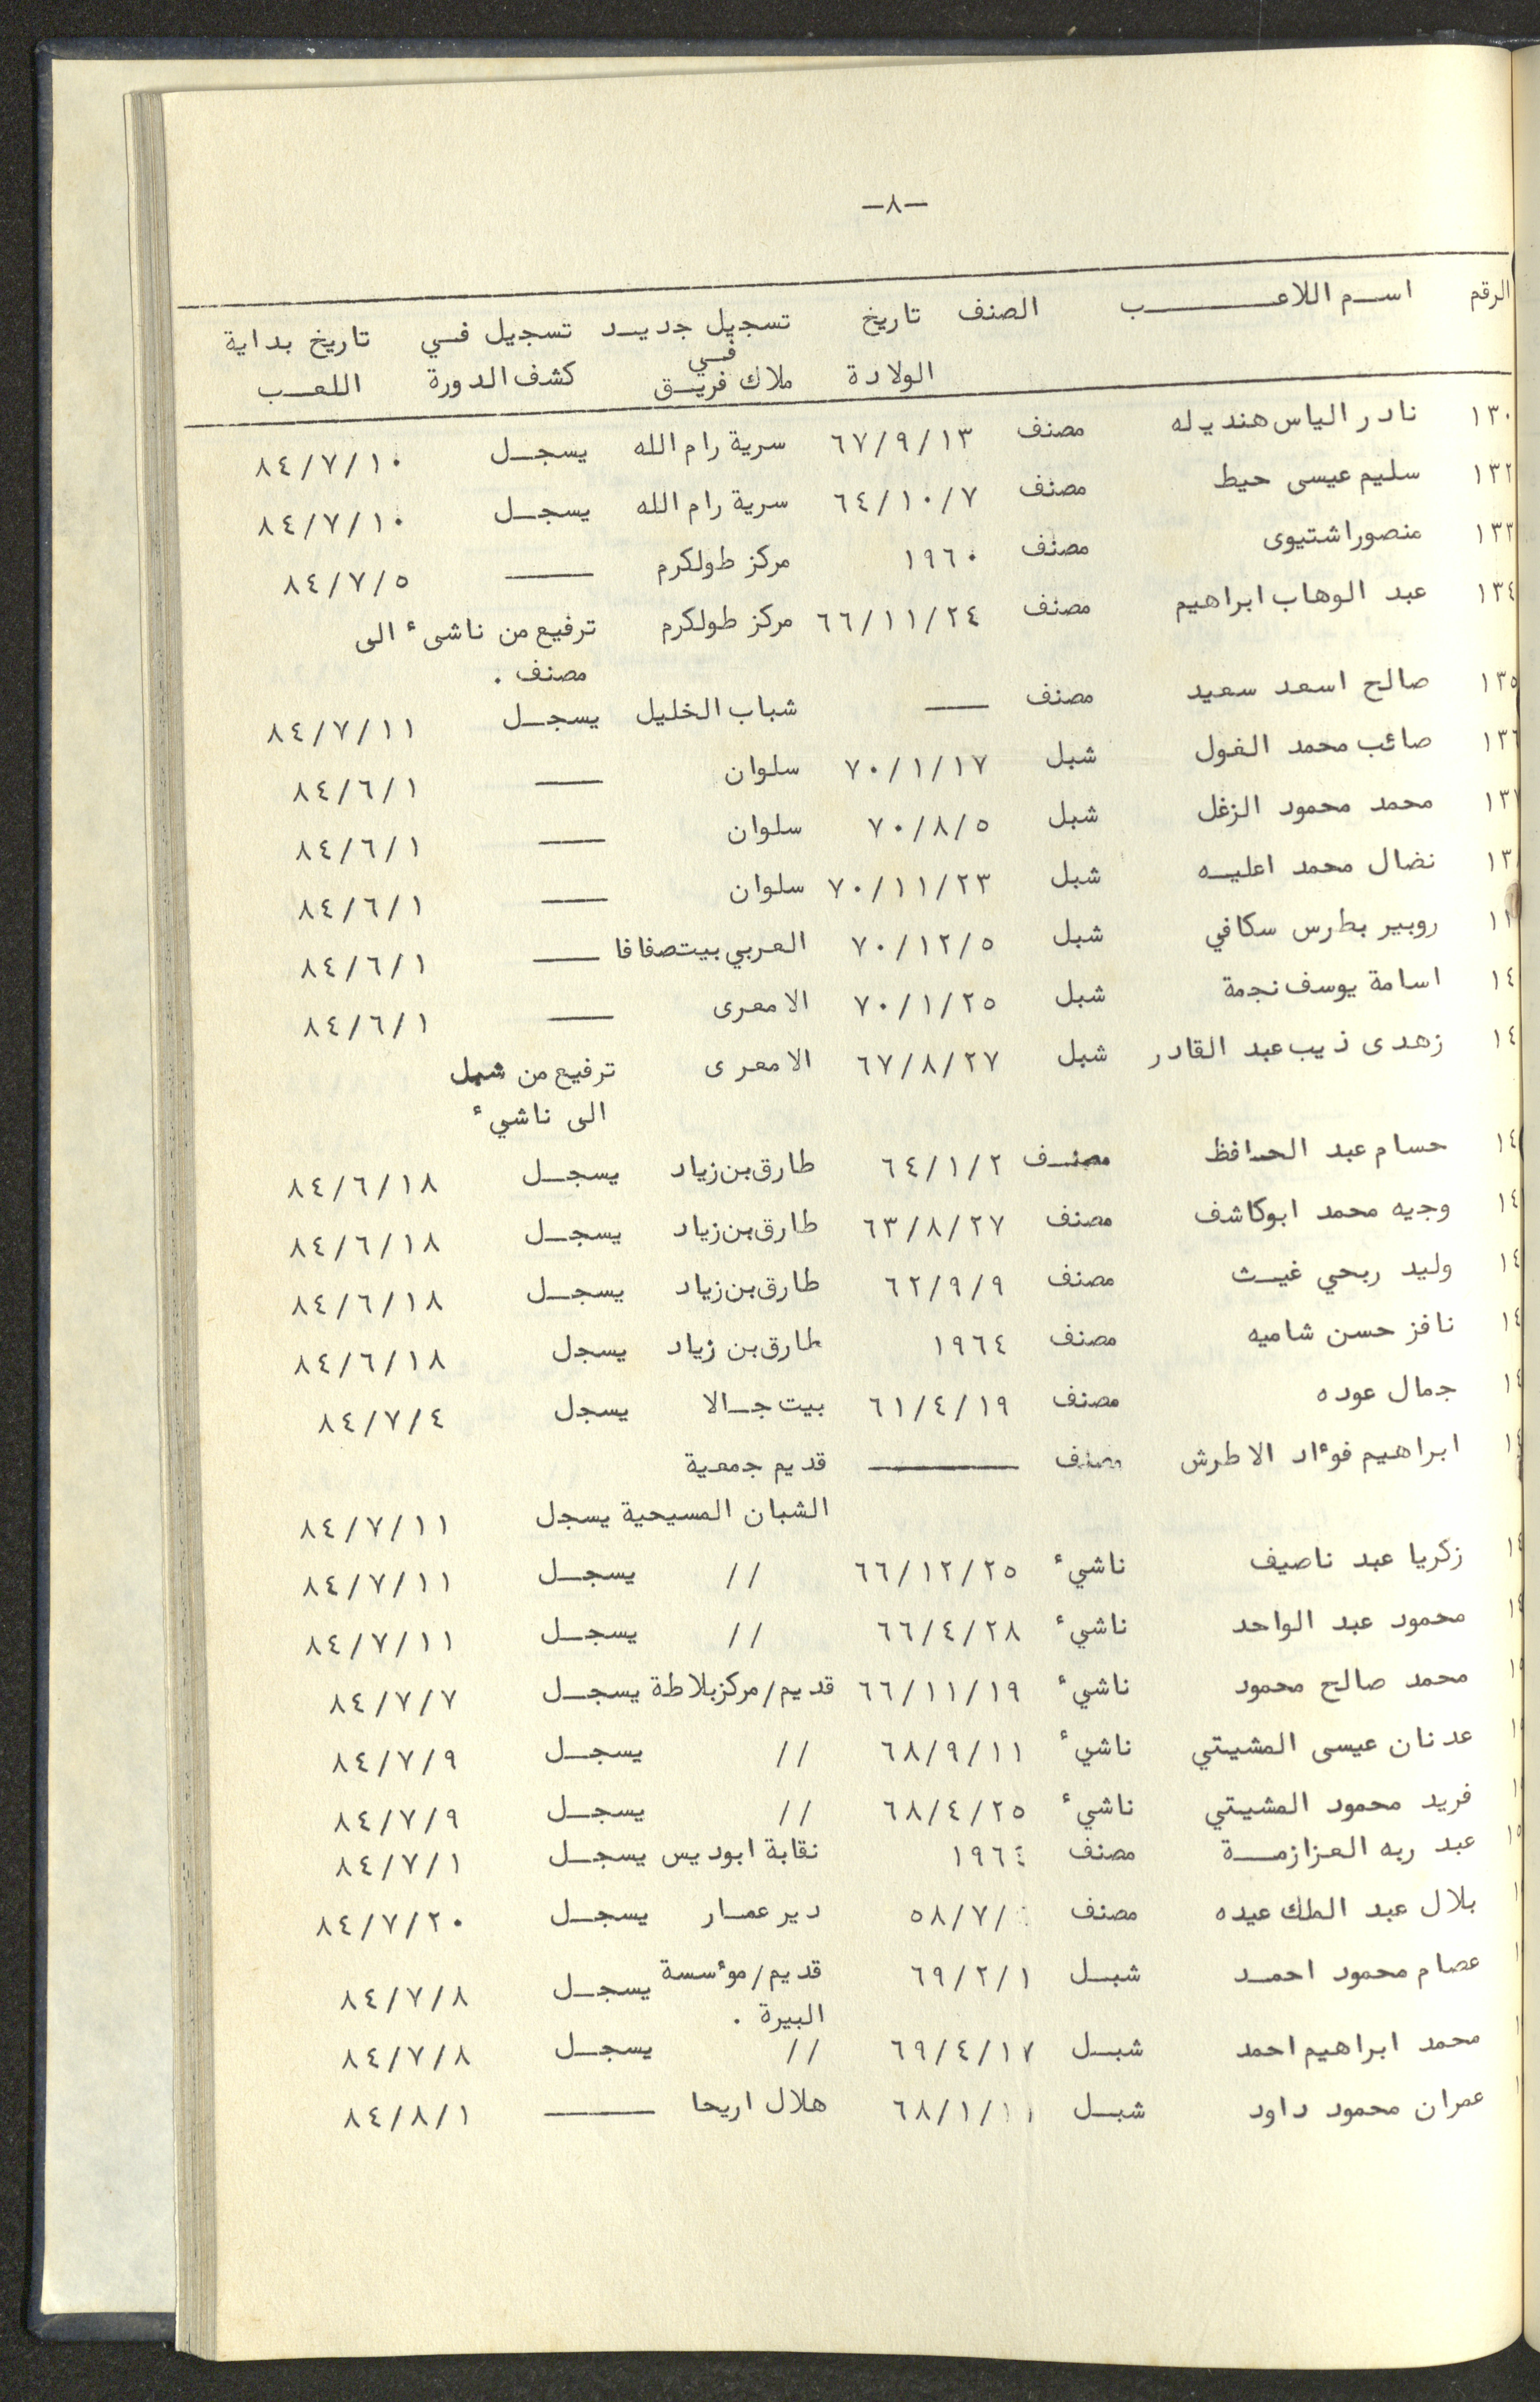 -٨-
الرقم اسم اللاعب الصنف تاريخ الولادة تسجيل جديد في ملاك فريق تسجيل في كشف الدورة تاريخ بداية اللعب
١٣٠ نادر الياس هنديله مصنف ٦٧/٩/١٣ سرية رام الله يسجل ٨٤/٧/١٠
١٣٢ سليم عيسى حيط مصنف ٦٤/١٠/٧ سرية رام الله يسجل ٨٤/٧/١٠
١٣٣ منصور اشتيوى مصنف ١٩٦٠ مركز طولكرم —— ٨٤/٧/٥
١٣٤ عبد الوهاب ابراهيم مصنف ٦٦/١١/٢٤ مركز طولكرم ترفيع من ناشىء الى
مصنف .
١٣٥ صالح اسعد سعيد مصنف —— شباب الخليل يسجل ٨٤/٧/١١
١٣٦ صائب محمد الغول شبل ٧٠/١/١٧ سلوان —— ٨٤/٦/١
محمد محمود الزغل شبل ٧٠/٨/٥ سلوان —— ٨٤/٦/١
نضال محمد اعليه شبل ٧٠/١١/٢٣ سلوان —— ٨٤/٦/١
روبير بطرس سكافي شبل ٧٠/١٢/٥ العربي بيت صفافا —— ٨٤/٦/١
اسامة يوسف نجمة شبل ٧٠/١/٢٥ الامعرى —— ٨٤/٦/١
زهدى ذيب عبد القادر شبل ٦٧/٨/٢٧ الامعرى ترفيع من شبل
الى ناشيء
حسام عبد الحافظ مصنف ٦٤/١/٢ طارق بن زياد يسجل ٨٤/٦/١٨
وجيه محمد ابوكاشف مصنف ٦٣/٨/٢٧ طارق بن زياد يسجل ٨٤/٦/١٨
وليد ربحي غيث مصنف ٦٢/٩/٩ طارق بن زياد يسجل ٨٤/٦/١٨
نافز حسن شاميه مصنف ١٩٦٤ طارق بن زياد يسجل ٨٤/٦/١٨
جمال عوده مصنف ٦١/٤/١٩ بيت جالا يسجل ٨٤/٧/٤
ابراهيم فوءاد الاطرش مصنف —— قديم جمعية
الشبان المسيحية يسجل ٨٤/٧/١١
زكريا عبد ناصيف ناشيء ٦٦/١٢/٢٥ // يسجل ٨٤/٧/١١
محمود عبد الواحد ناشيء ٦٦/٤/٢٨ // يسجل ٨٤/٧/١١
محمد صالح محمود ناشيء ٦٦/١١/١٩ قديم/مركز بلاطة يسجل ٨٤/٧/٧
عدنان عيسى المشيتي ناشيء ٦٨/٩/١١ // يسجل ٨٤/٧/٩
فريد محمود المشيتي ناشيء ٦٨/٤/٢٥ // يسجل ٨٤/٧/٩
عبد ربه العزازمة مصنف ١٩٦٤ نقابة ابوديس يسجل ٨٤/٧/١
بلال عبد الملك عيده مصنف ٥٨/٧/ دير عمار يسجل ٨٤/٧/٢٠
عصام محمود احمد شبل ٦٩/٢/١ قديم/موءسسة يسجل ٨٤/٧/٨
البيرة .
محمد ابراهيم احمد شبل ٦٩/٤/١٧ // يسجل ٨٤/٧/٨
عمران محمود داود شبل ٦٨/١/١١ هلال اريحا —— ٨٤/٨/١